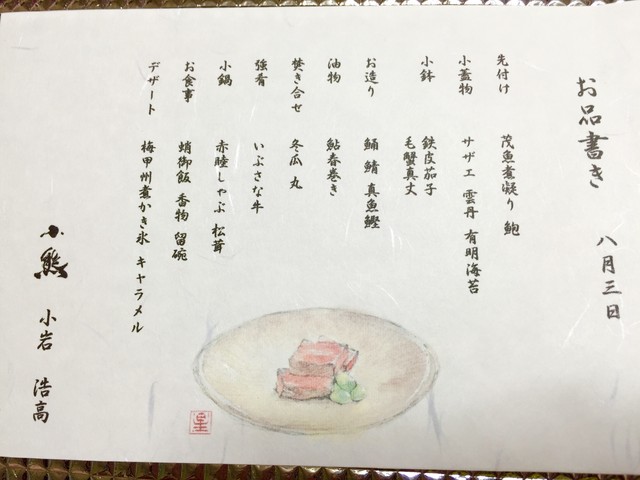 お品書き 八月三日
先付け 茂魚煮凝り 鮑
小蓋物 サザエ 雲丹 有明海苔
小鉢 鉄皮茄子
毛蟹真丈
お造り 鯒 鯖 真魚鰹
油物 鮎春巻き
焚き合せ 冬瓜 丸
強肴 いぶさな牛
小鍋 赤睦しゃぶ 松茸
お食事 蛸御飯 香物 留碗
デザート 梅甲州煮かき氷 キャラメル
小熊 小岩 浩高